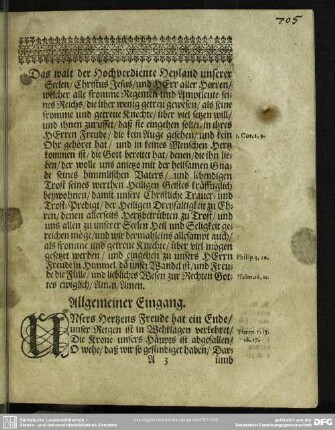 705
Das walt der Hochverdiente Heyland unserer
Seelen/ Christus Jesus/ und HErr aller Herren/
welcher alle fromme Regenten und Amptleute sei-
nes Reichs/ die über wenig getreu gewesen/ als seine
fromme und getreue Knechte/ über viel setzen will/
und ihnen zuruffet/ daß sie eingehen sollen in ihres
HErren Freude/ die kein Auge gesehen/ und kein
Ohr gehöret hat/ und in keines Menschen Hertz
kommen ist/ die Gott bereitet hat/ denen/ die ihn lie-
ben/ der wolle uns anietzo mit der heilsamen Gna-
de seines himmlischen Vaters/ und lebendigen
Trost seines werthen Heiligen Geistes kräfftiglich
beywohnen/ damit unsere Christliche Traur- und
Trost-Predigt/ der Heiligen Dreyfaltigkeit zu Eh-
ren/ denen allerseits Hertzbetrübten zu Trost/ und
uns allen zu unserer Seelen Heil und Seligkeit ge-
reichen möge/ und wir dermahleins allesampt auch/
als fromme und getreue Knechte/ über viel mögen
gesetzet werden/ und eingehen zu unsers HErrn
Freude in Himmel/ da unser Wandel ist/ und Freu-
de die Fülle/ und liebliches Wesen zur Rechten Got-
tes ewiglich/ Amen/ Amen.
1. Cor. 2, 9.
Philip. 3, 20.
Psalm 16, 11.
Allgemeiner Eingang.
UNsers Hertzens Freude hat ein Ende/
unser Reigen ist in Wehklagen verkehret/
Die Krone unsers Häupts ist abgefallen/
O wehe/ daß wir so gesündiget haben/ Dar-
Thren. 5, 15.
16. 17.
A 3
umb